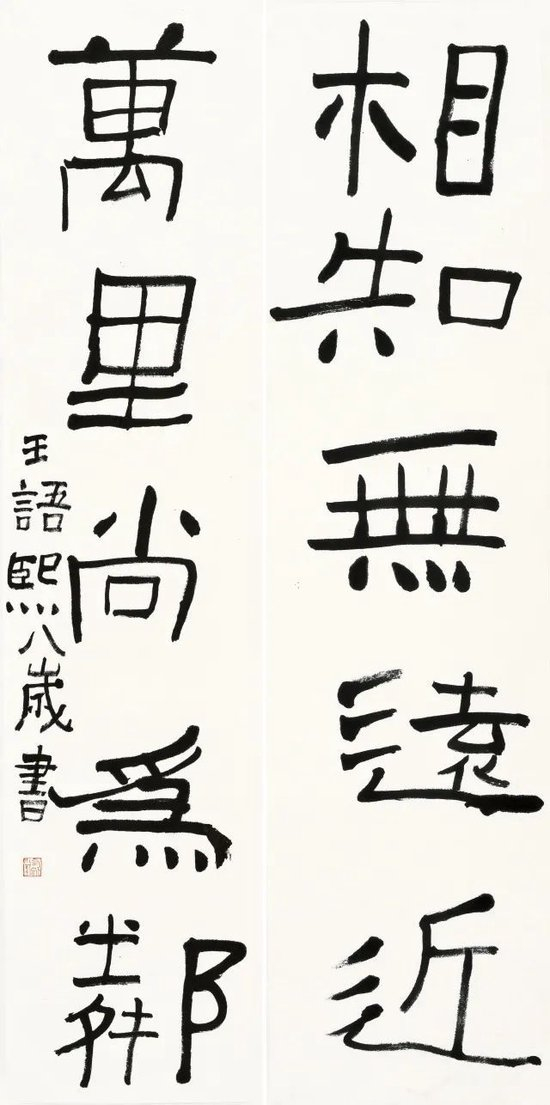 相知無遠近
萬里尚爲鄰
王語熙八歳書